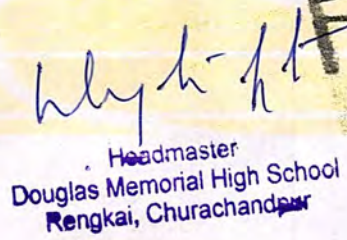 Headmaster
Douglas Memorial High School
Rengkai, Churachandpur